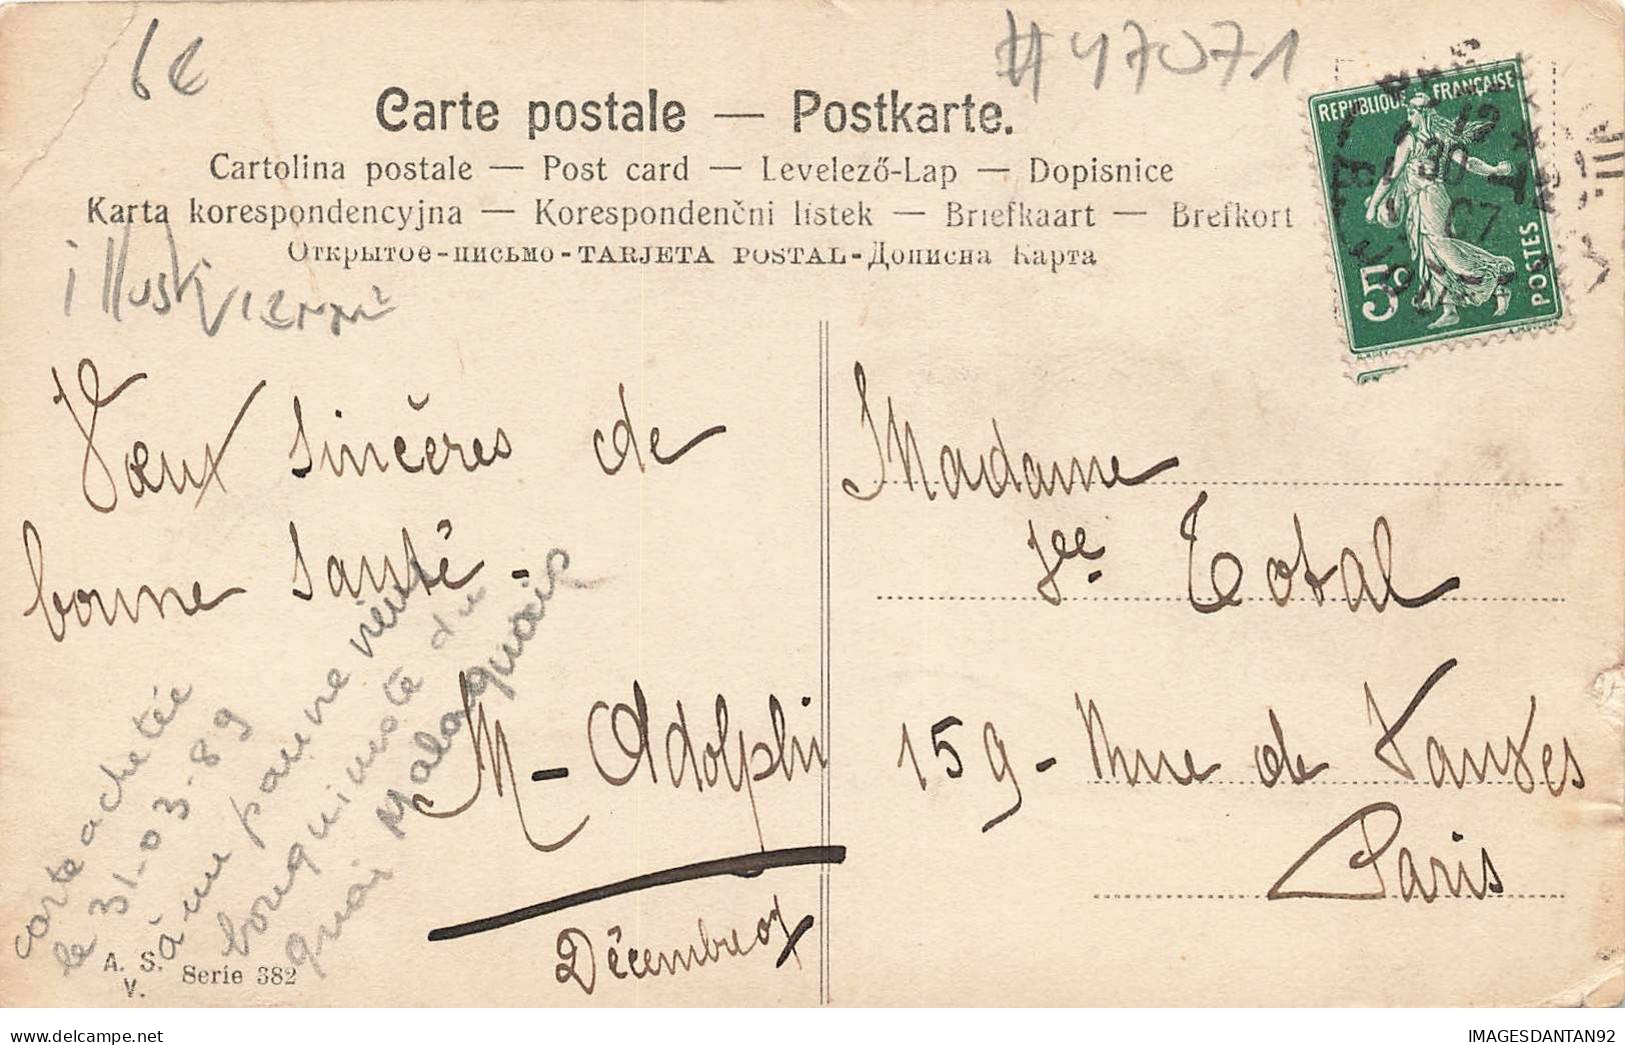 6€
#47071
Carte postale — Postkarte.
Cartolina postale — Post card — Levelező-Lap — Dopisnice
Karta korespondencyjna — Korespondenční lístek — Briefkaart — Brefkort
Открытое-письмо-TARJETA POSTAL-Дописна Карта
RÉPUBLIQUE FRANÇAISE
5c
POSTES
12
30
07
illust Viennois
Vœux sincères de
bonne santé -
M - Adolphi
Décembre 07
Madame
Vee Total
159 - Rue de Vanves
Paris
carte achetée
le 31-03-89
à un pauvre vieux
bouquiniste du
quai Malaquais
A. S. V. Serie 382
IMAGESDANTAN92
https://www.delcampe.net